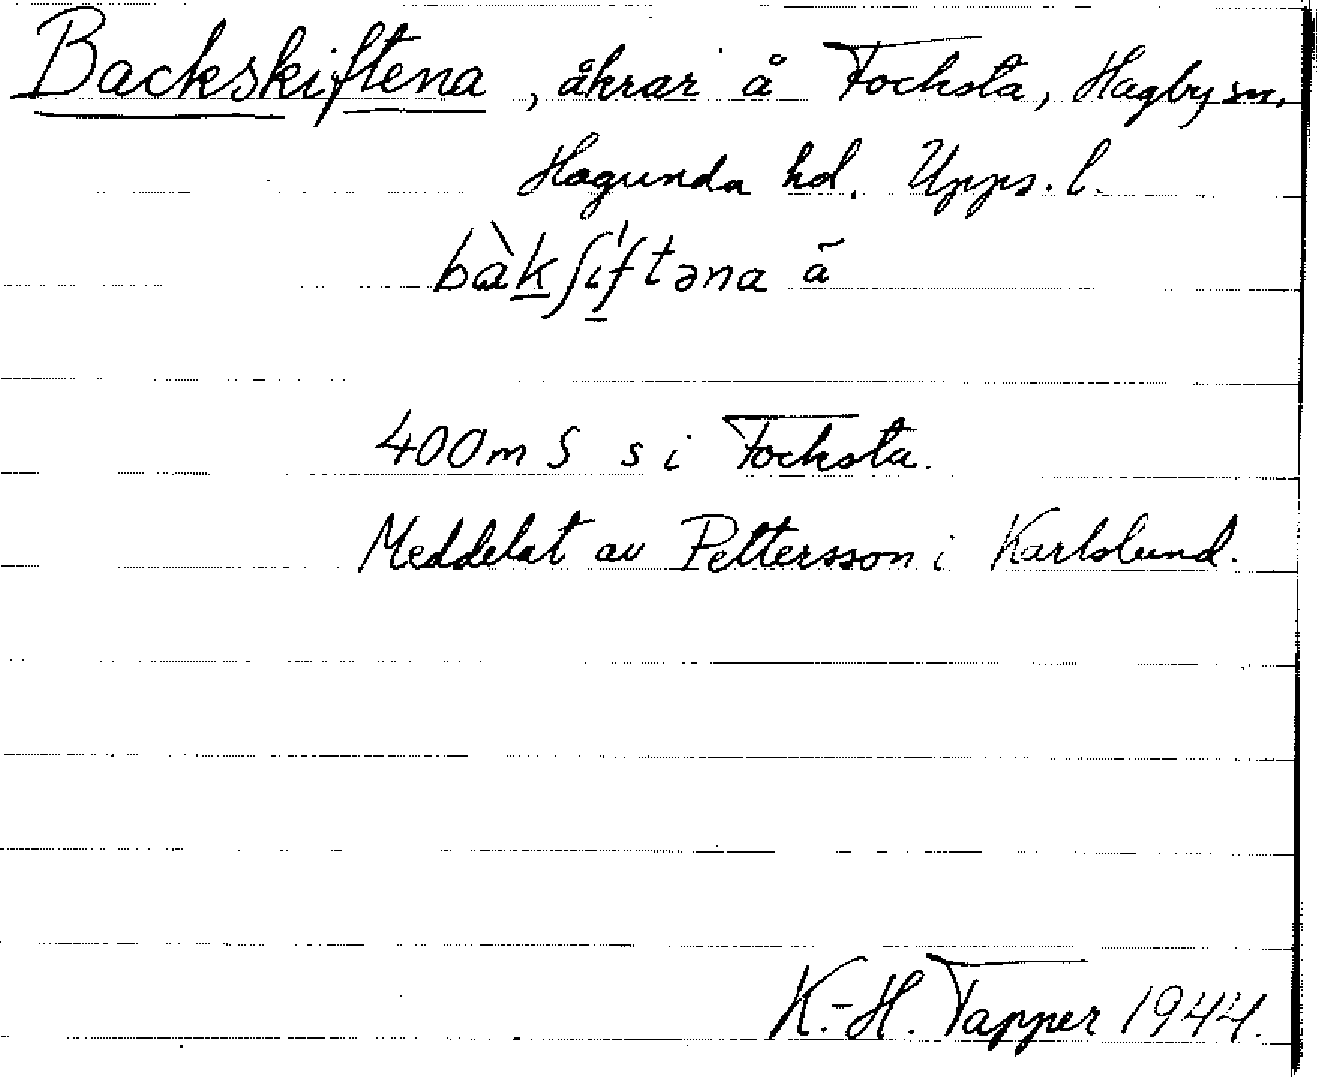 Backskiftena, åkrar å Focksta, Hagby sn.
Hagunda hd. Upps. l.
bàkʃı̍ftəna ā̃
400m S s i Focksta.
Meddelat av Pettersson i Karlslund.
K.-H. Tapper 1944.